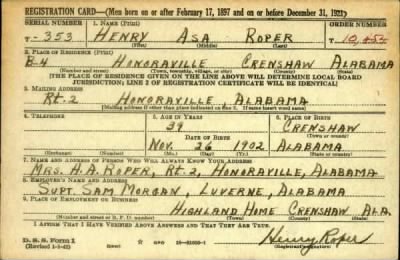 REGISTRATION CARD—(Men born on or after February 17, 1897 and on or before December 31, 1921)
SERIAL NUMBER 1. NAME (Print) ORDER NUMBER
T-353 HENRY ASA ROPER 10,453
(First) (Middle) (Last)
2. PLACE OF RESIDENCE (Print)
B-4 HONORAVILLE CRENSHAW ALABAMA
(Number and street) (Town, township, village, or city) (County) (State)
[THE PLACE OF RESIDENCE GIVEN ON THE LINE ABOVE WILL DETERMINE LOCAL BOARD
JURISDICTION; LINE 2 OF REGISTRATION CERTIFICATE WILL BE IDENTICAL]
3. MAILING ADDRESS
RT. 2 HONORAVILLE ALABAMA
[Mailing address if other than place indicated on line 2. If same insert word same]
4. TELEPHONE 5. AGE IN YEARS 6. PLACE OF BIRTH
39 CRENSHAW
DATE OF BIRTH (Town or county)
NOV. 26 1902 ALABAMA
(Exchange) (Number) (Mo.) (Day) (Yr.) (State or country)
7. NAME AND ADDRESS OF PERSON WHO WILL ALWAYS KNOW YOUR ADDRESS
MRS. H.A. ROPER, RT. 2, HONORAVILLE, ALABAMA
8. EMPLOYER'S NAME AND ADDRESS
SUPT. SAM MORGAN, LUVERNE, ALABAMA
9. PLACE OF EMPLOYMENT OR BUSINESS
HIGHLAND HOME CRENSHAW ALA.
(Number and street or R. F. D. number) (Town) (County) (State)
I AFFIRM THAT I HAVE VERIFIED ABOVE ANSWERS AND THAT THEY ARE TRUE.
D. S. S. Form 1 Henry Roper
(Revised 1-1-42) (Registrant's signature)